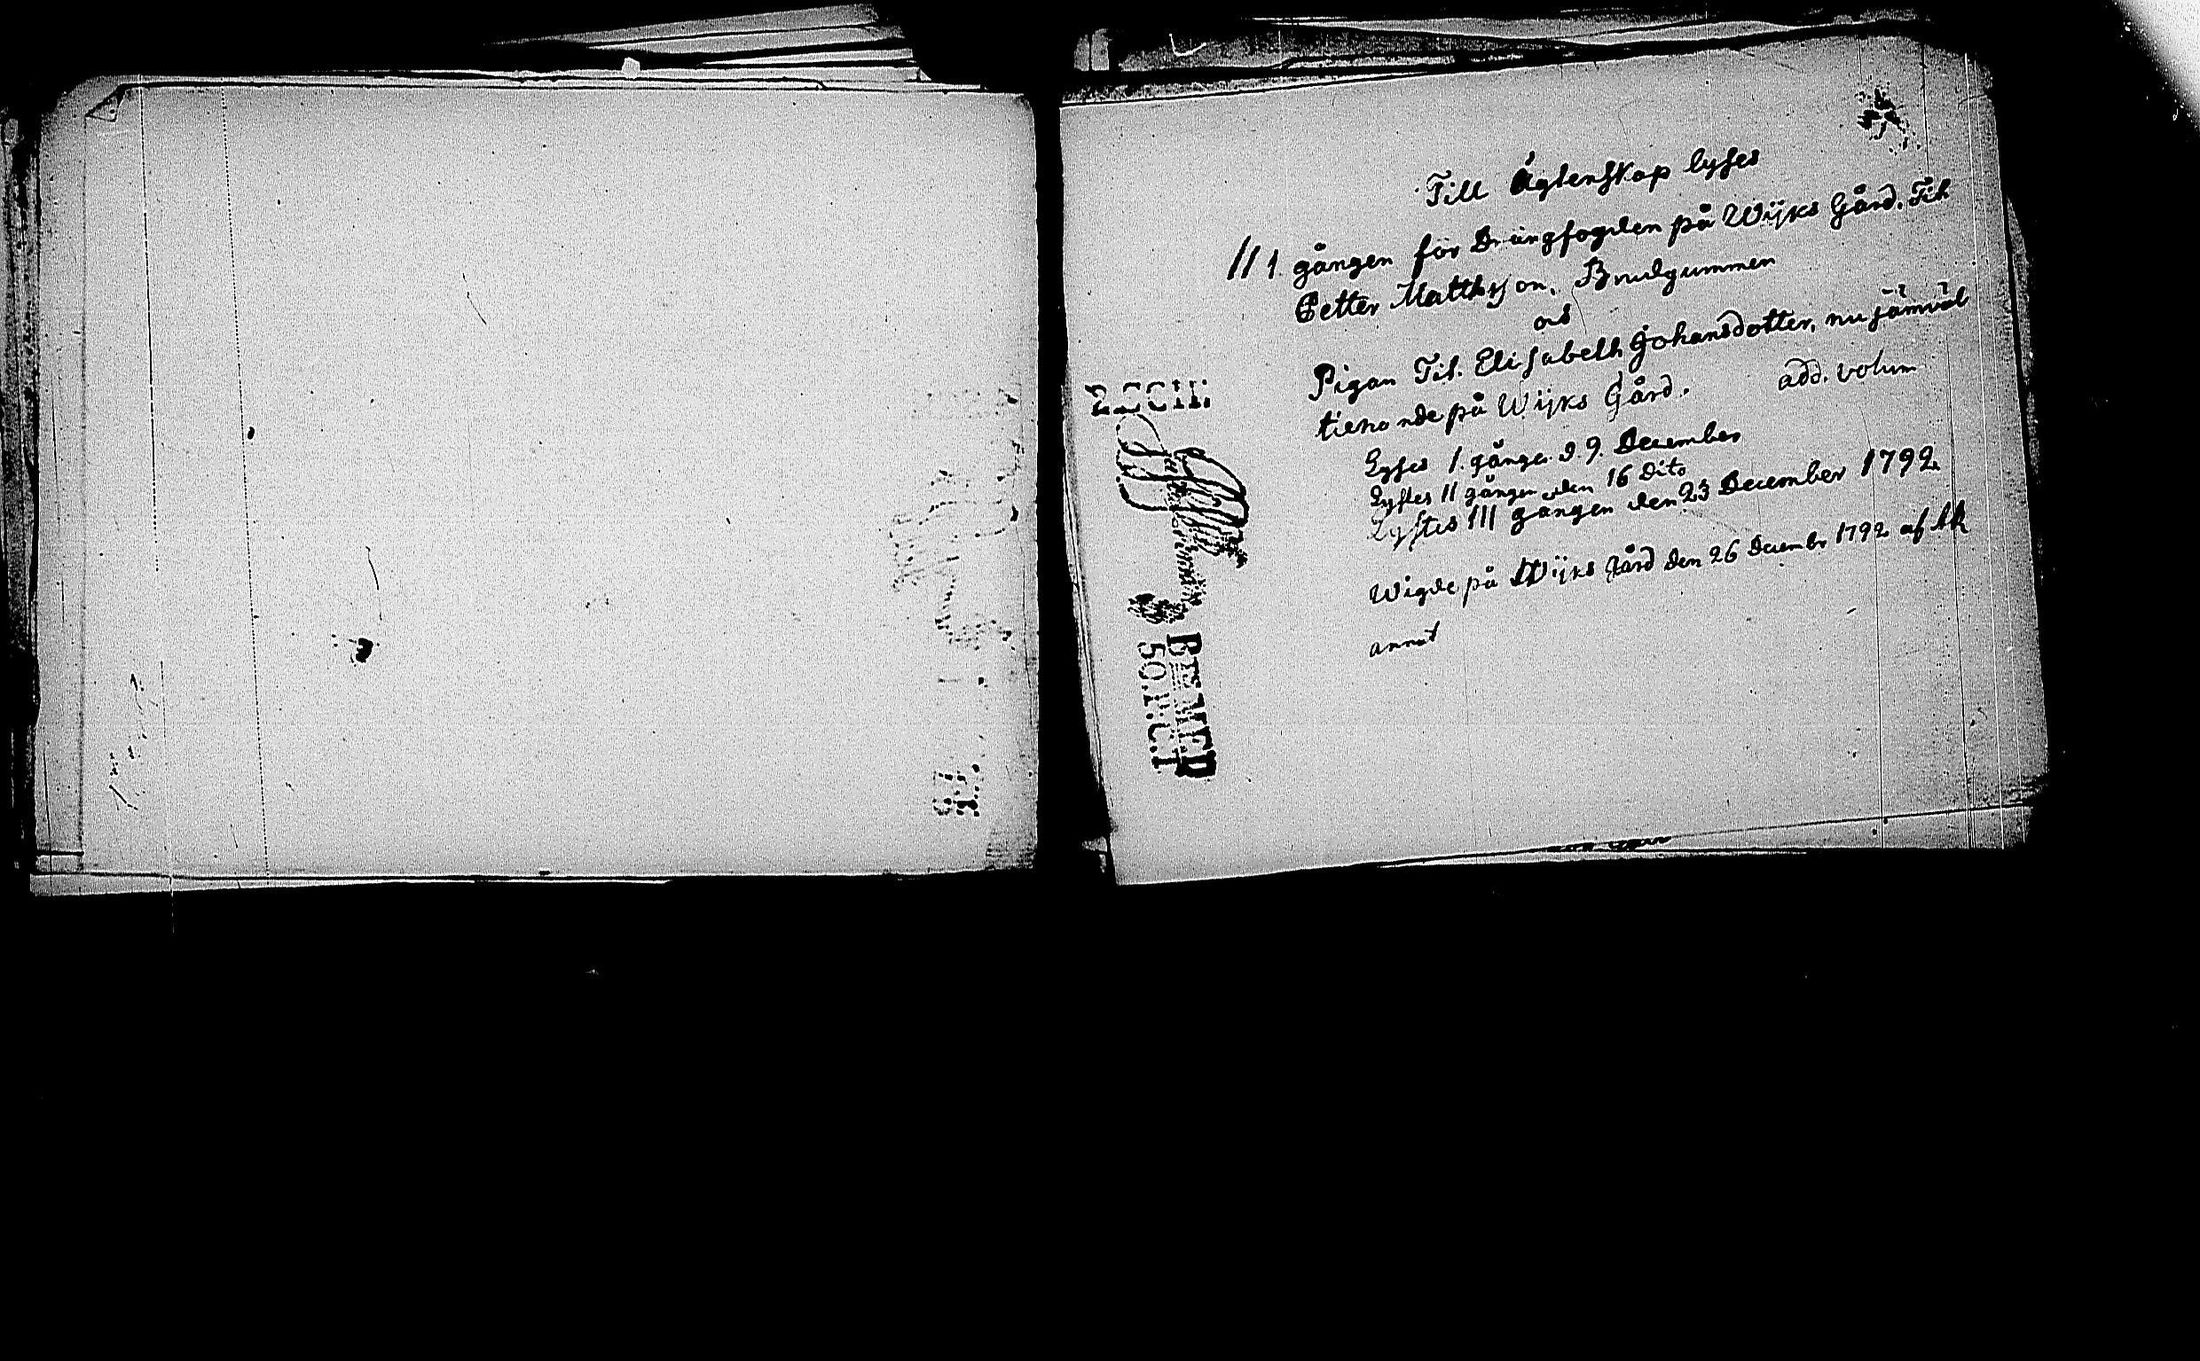 Till Ägtenskap lyses
111. gången för Drängfogden på Wijks Gård. Tit.
Petter Matthsson, Brudgummen
och
Pigan Tit. Elisabeth Johansdotter, nu jämväl
tienande på Wijks Gård.
add. volum
Lyses 1. gången d 9. December
Lystes 11 gången den 16 dito
Lystes 111 gången den 23 December 1792.
Wigde på Wijks Gård den 26 Decembr 1792 af
annat